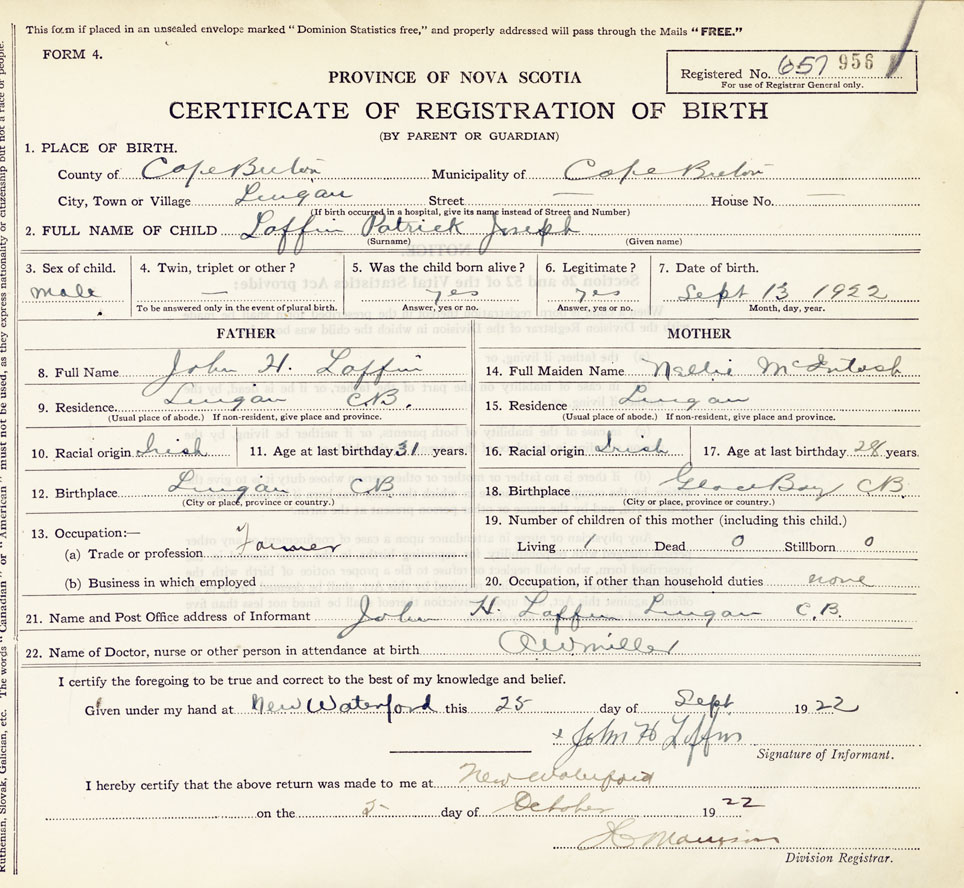 This form if placed in an unsealed envelope marked “Dominion Statistics free,” and properly addressed will pass through the Mails “FREE.”
FORM 4.
Registered No. 657 956
For use of Registrar General only.
PROVINCE OF NOVA SCOTIA
CERTIFICATE OF REGISTRATION OF BIRTH
(BY PARENT OR GUARDIAN)
1. PLACE OF BIRTH.
County of Cape Breton Municipality of Cape Breton
City, Town or Village Lingan Street — House No. —
(If birth occurred in a hospital, give its name instead of Street and Number)
2. FULL NAME OF CHILD Laffin Patrick Joseph
(Surname) (Given name)
3. Sex of child. 4. Twin, triplet or other? 5. Was the child born alive? 6. Legitimate? 7. Date of birth.
male — yes yes Sept 13 1922
To be answered only in the event of plural birth. Answer, yes or no. Answer, yes or no. Month, day, year.
FATHER MOTHER
8. Full Name John H. Laffin 14. Full Maiden Name Nellie McIntosh
9. Residence Lingan C.B. 15. Residence Lingan
(Usual place of abode.) If non-resident, give place and province. (Usual place of abode.) If non-resident, give place and province.
10. Racial origin Irish 11. Age at last birthday 31 years. 16. Racial origin Irish 17. Age at last birthday 28 years.
12. Birthplace Lingan CB 18. Birthplace Glace Bay CB
(City or place, province or country.) (City or place, province or country.)
13. Occupation:— 19. Number of children of this mother (including this child.)
(a) Trade or profession Farmer Living 1 Dead 0 Stillborn 0
(b) Business in which employed 20. Occupation, if other than household duties none
21. Name and Post Office address of Informant John H. Laffin Lingan C.B.
22. Name of Doctor, nurse or other person in attendance at birth Miller
I certify the foregoing to be true and correct to the best of my knowledge and belief.
Given under my hand at New Waterford this 25 day of Sept 1922
x John H Laffin
Signature of Informant.
I hereby certify that the above return was made to me at New Waterford
on the 5 day of October 1922
Division Registrar.
The words “Canadian” or “American” must not be used, as they express nationality or citizenship but not a race or people.
Ruthenian, Slovak, Galician, etc.